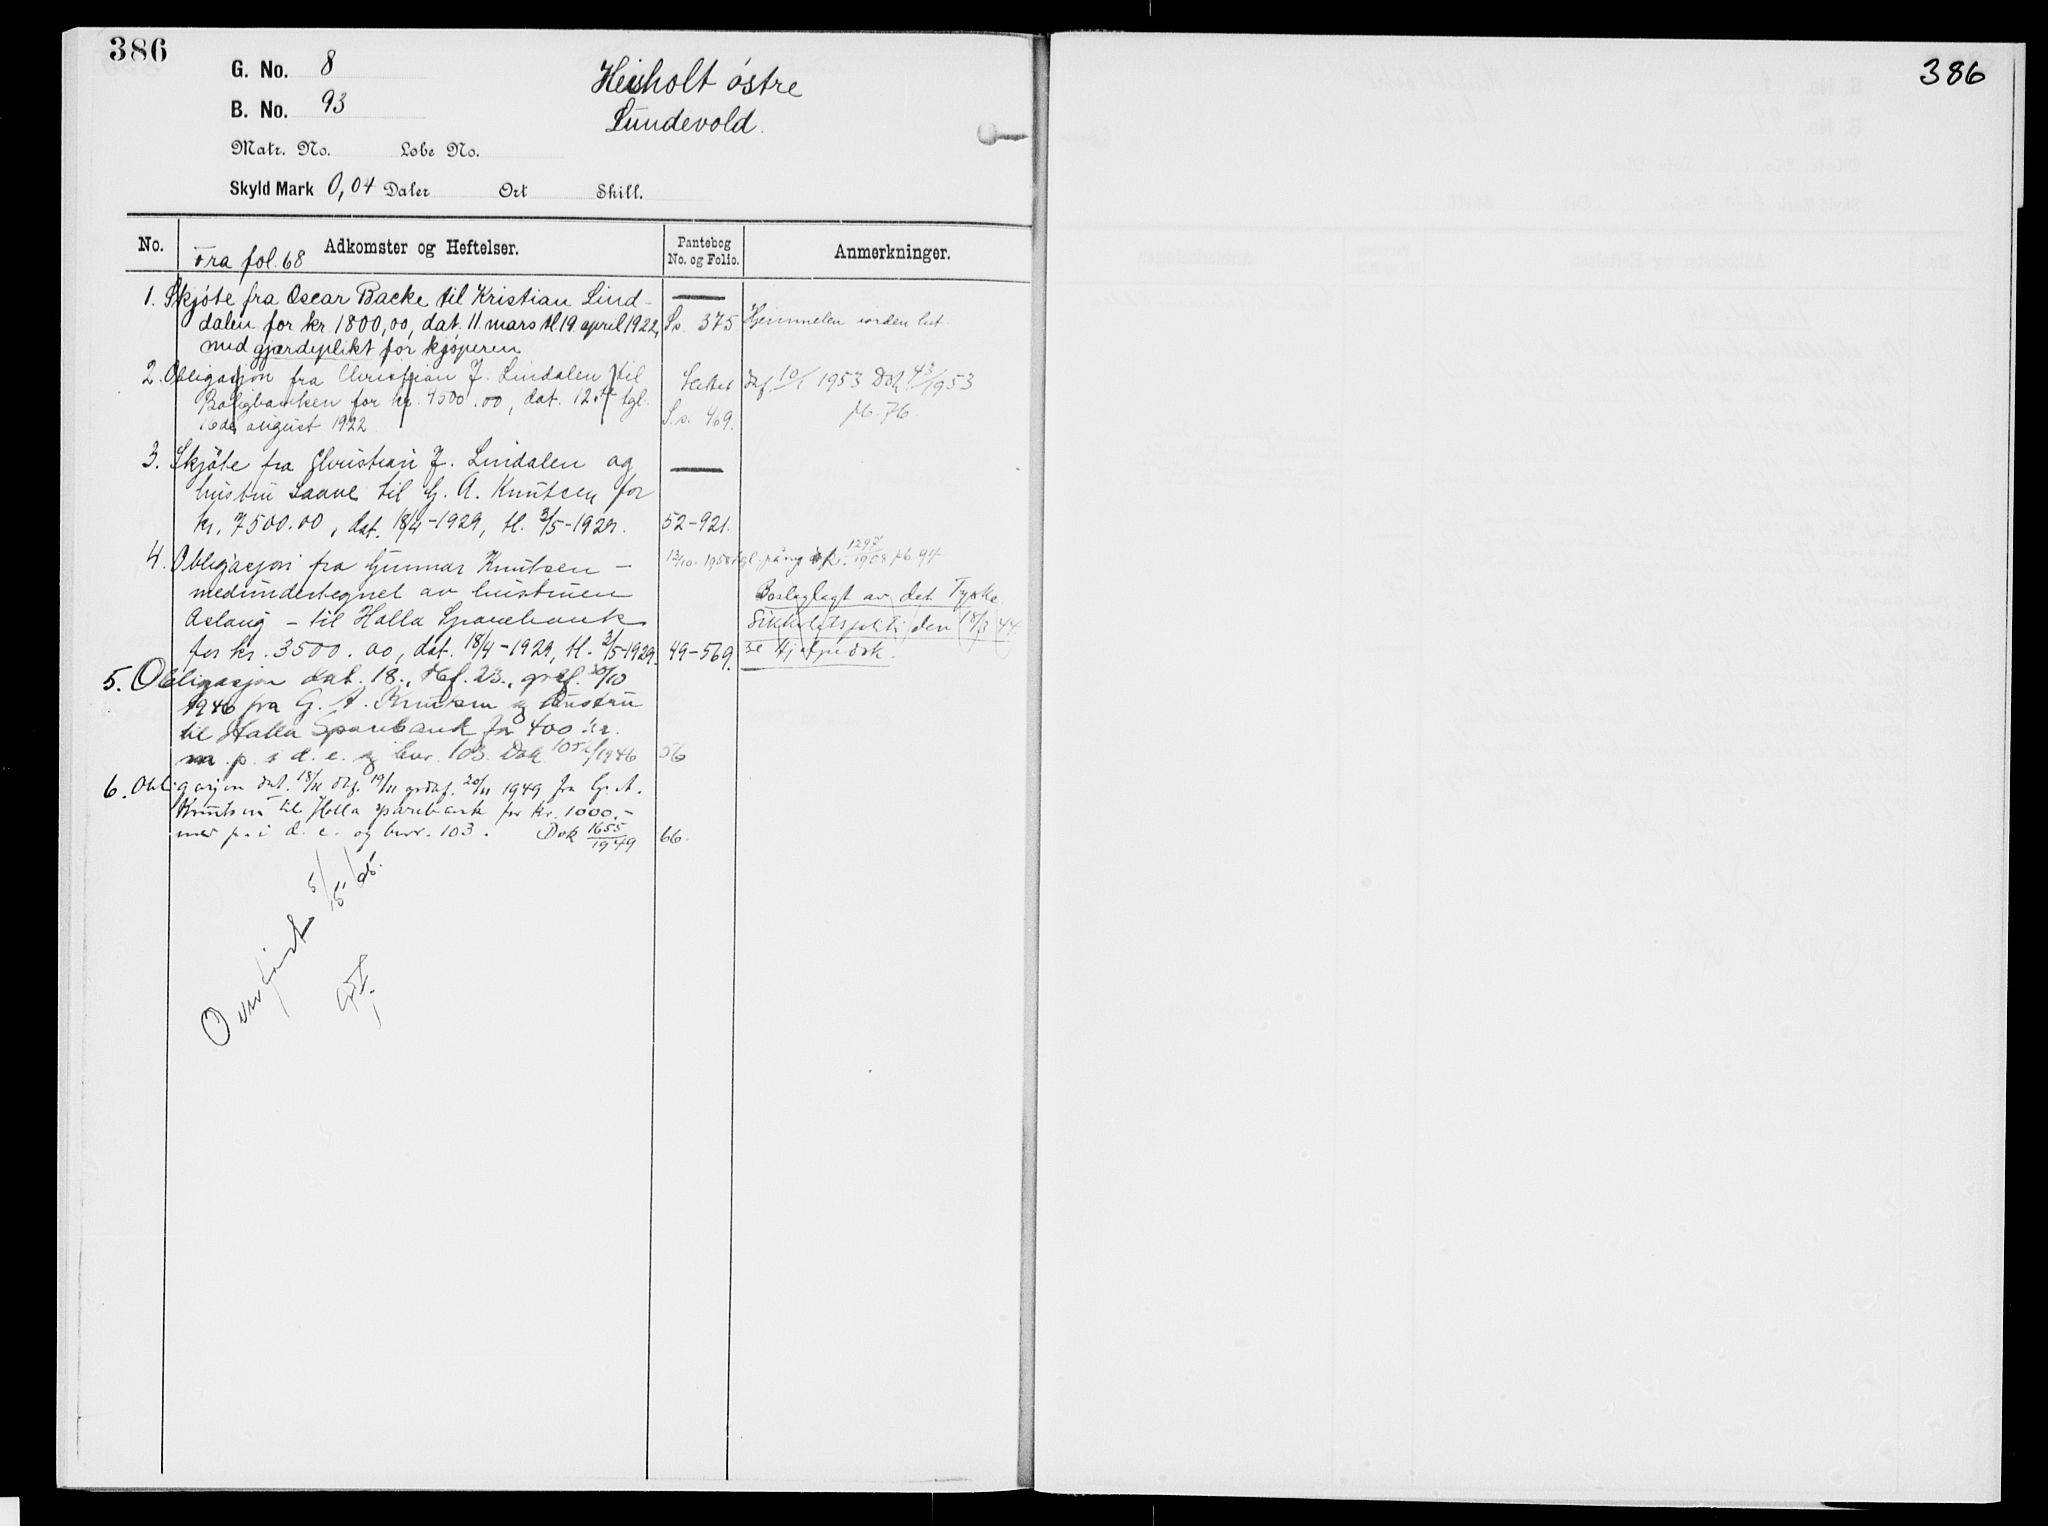 386
386
G. No. 8
Heisholt östre
B. No. 93
Lundevold.
Matr. No. Løbe No.
Skyld Mark 0,04 Daler Ort Skill.
No. Adkomster og Heftelser. Pantebog No. og Folio. Anmerkninger.
Fra fol. 68
1. Skjöte fra Oscar Backe til Kristian Lind-
dalen for kr. 1800,00, dat. 11 mars tl. 19 april 1922, S.s. 375 Hjemmelen
med gjerdeplikt for kjöperen
2. Obligasjon fra Christian J. Lindalen til
Boligbanken for kr. 4500.00, dat. 12te tgl.
16de august 1922 S.s. 409.
10/1 1953 Dok 43/1953
pb. 76.
3. Skjöte fra Christian J. Lindalen og
hustru til G. A. Knutsen for
kr. 7500.00, dat. 18/4-1929, tl. 3/5-1929. 52-921.
4. Obligasjon fra Gunnar Knutsen –
medundertegnet av hustruen
Aslaug – til Holla Sparebank
for kr. 3500.00, dat. 18/4-1929, tl. 3/5-1929. 49-569.
1297/1958 pb 94
Beslaglagt av det Tyske
Sikkerhetspoliti den 18/3 44.
se Hjelpedok.
5. Obligasjon dat. 18., 23., 30/10
1946 fra G. A. Knutsen og hustru
til Holla Sparebank for 400 kr.
m. p. i d. e. og bnr. 103. Dok 1946 56
6. Obligasjon dat. 18/11 dbf. 19/11 20/11 1949 fra G. A.
Knutsen til Holla sparebank for kr. 1000.-
med p. i d. e. og bnr. 103. Dok 1655/1949 66.
Overført